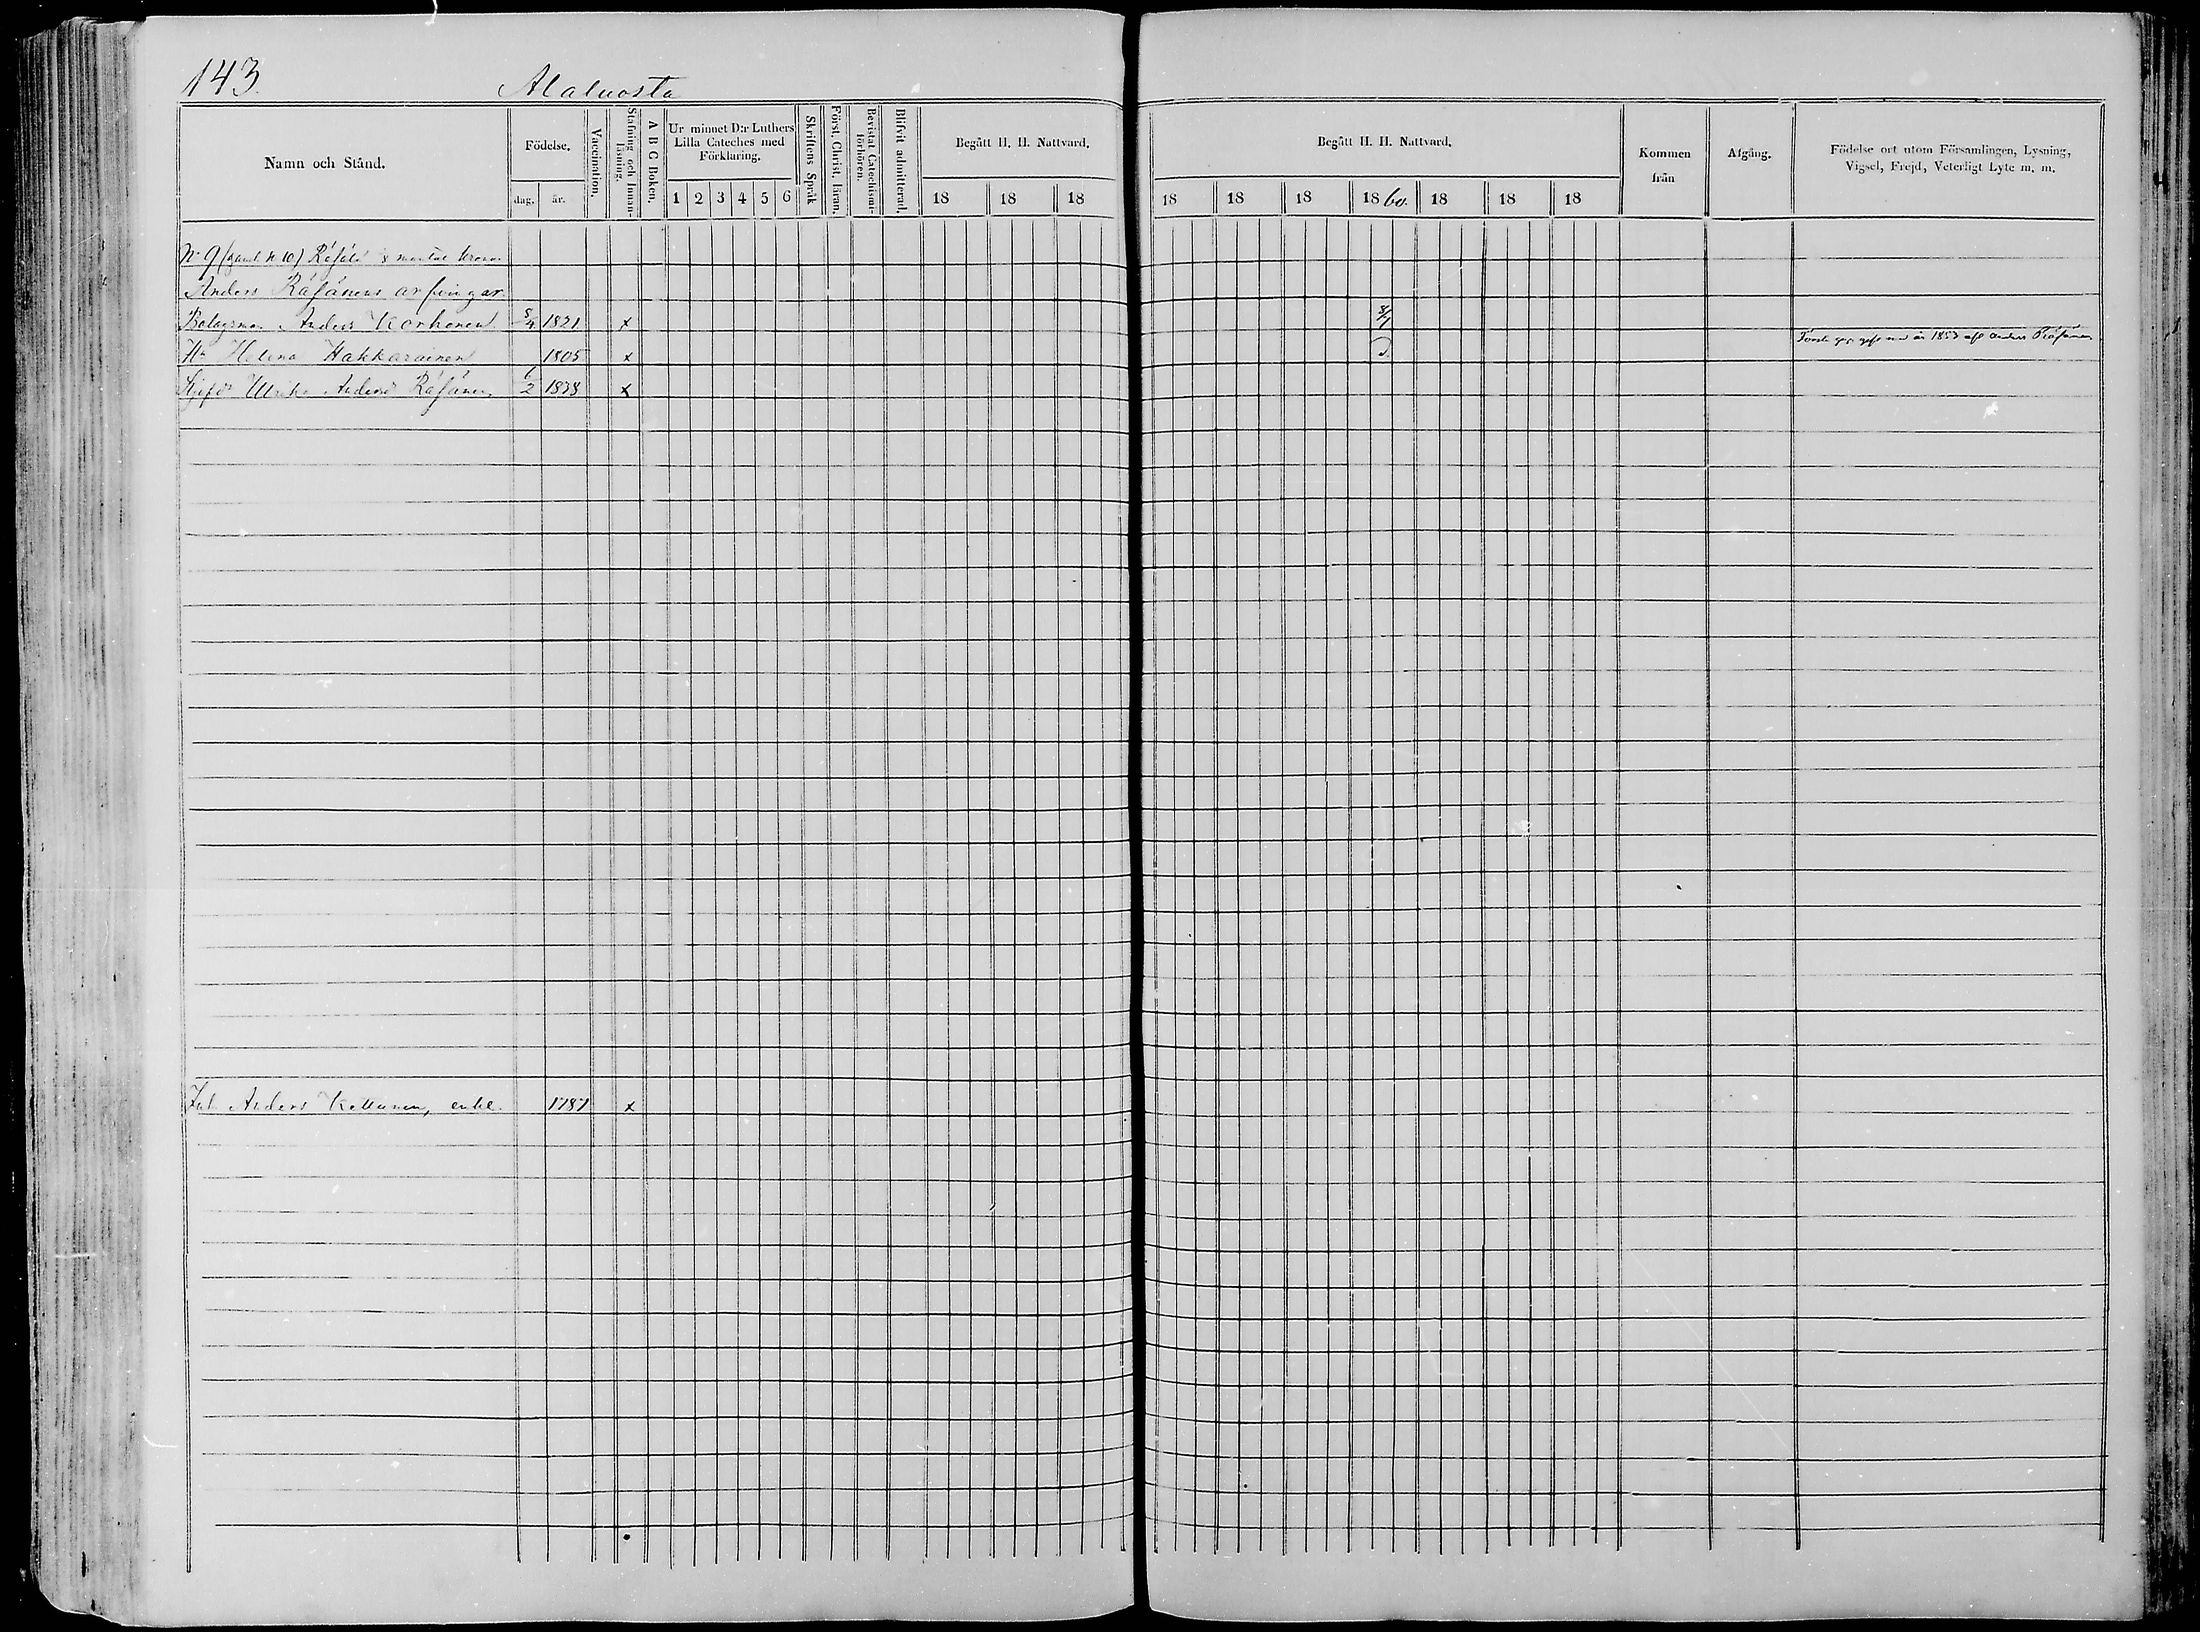 143.
Alaluosta
Namn och Stånd.
Födelse.
dag. år.
Vaccination.
Stafning och Innanläsning.
A B C Boken.
Ur minnet D:r Luthers
Lilla Cateches med
Förklaring.
1 2 3 4 5 6
Skriftens Språk
Först. Christ. läran.
Bevistat Catechismiförhören.
Blifvit admitterad.
Begått H. H. Nattvard.
18 18 18
Begått H. H. Nattvard.
18 18 18 18 60. 18 18 18
Kommen
från
Afgång.
Födelse ort utom Församlingen, Lysning,
Vigsel, Frejd, Veterligt Lyte m. m.
N:o 9 (gaml N 10) mantal krono
Anders Räsänens arfvingar
Bolagsman Anders Korhonen 8/4 1821 x 8/7
Hu Helena Hakkarainen 1805 x d. år 1853 afl Anders Räsänen
Ulrika Andersd Räsänen 1838 x
Anders Kettunen, enkl. 1787 x